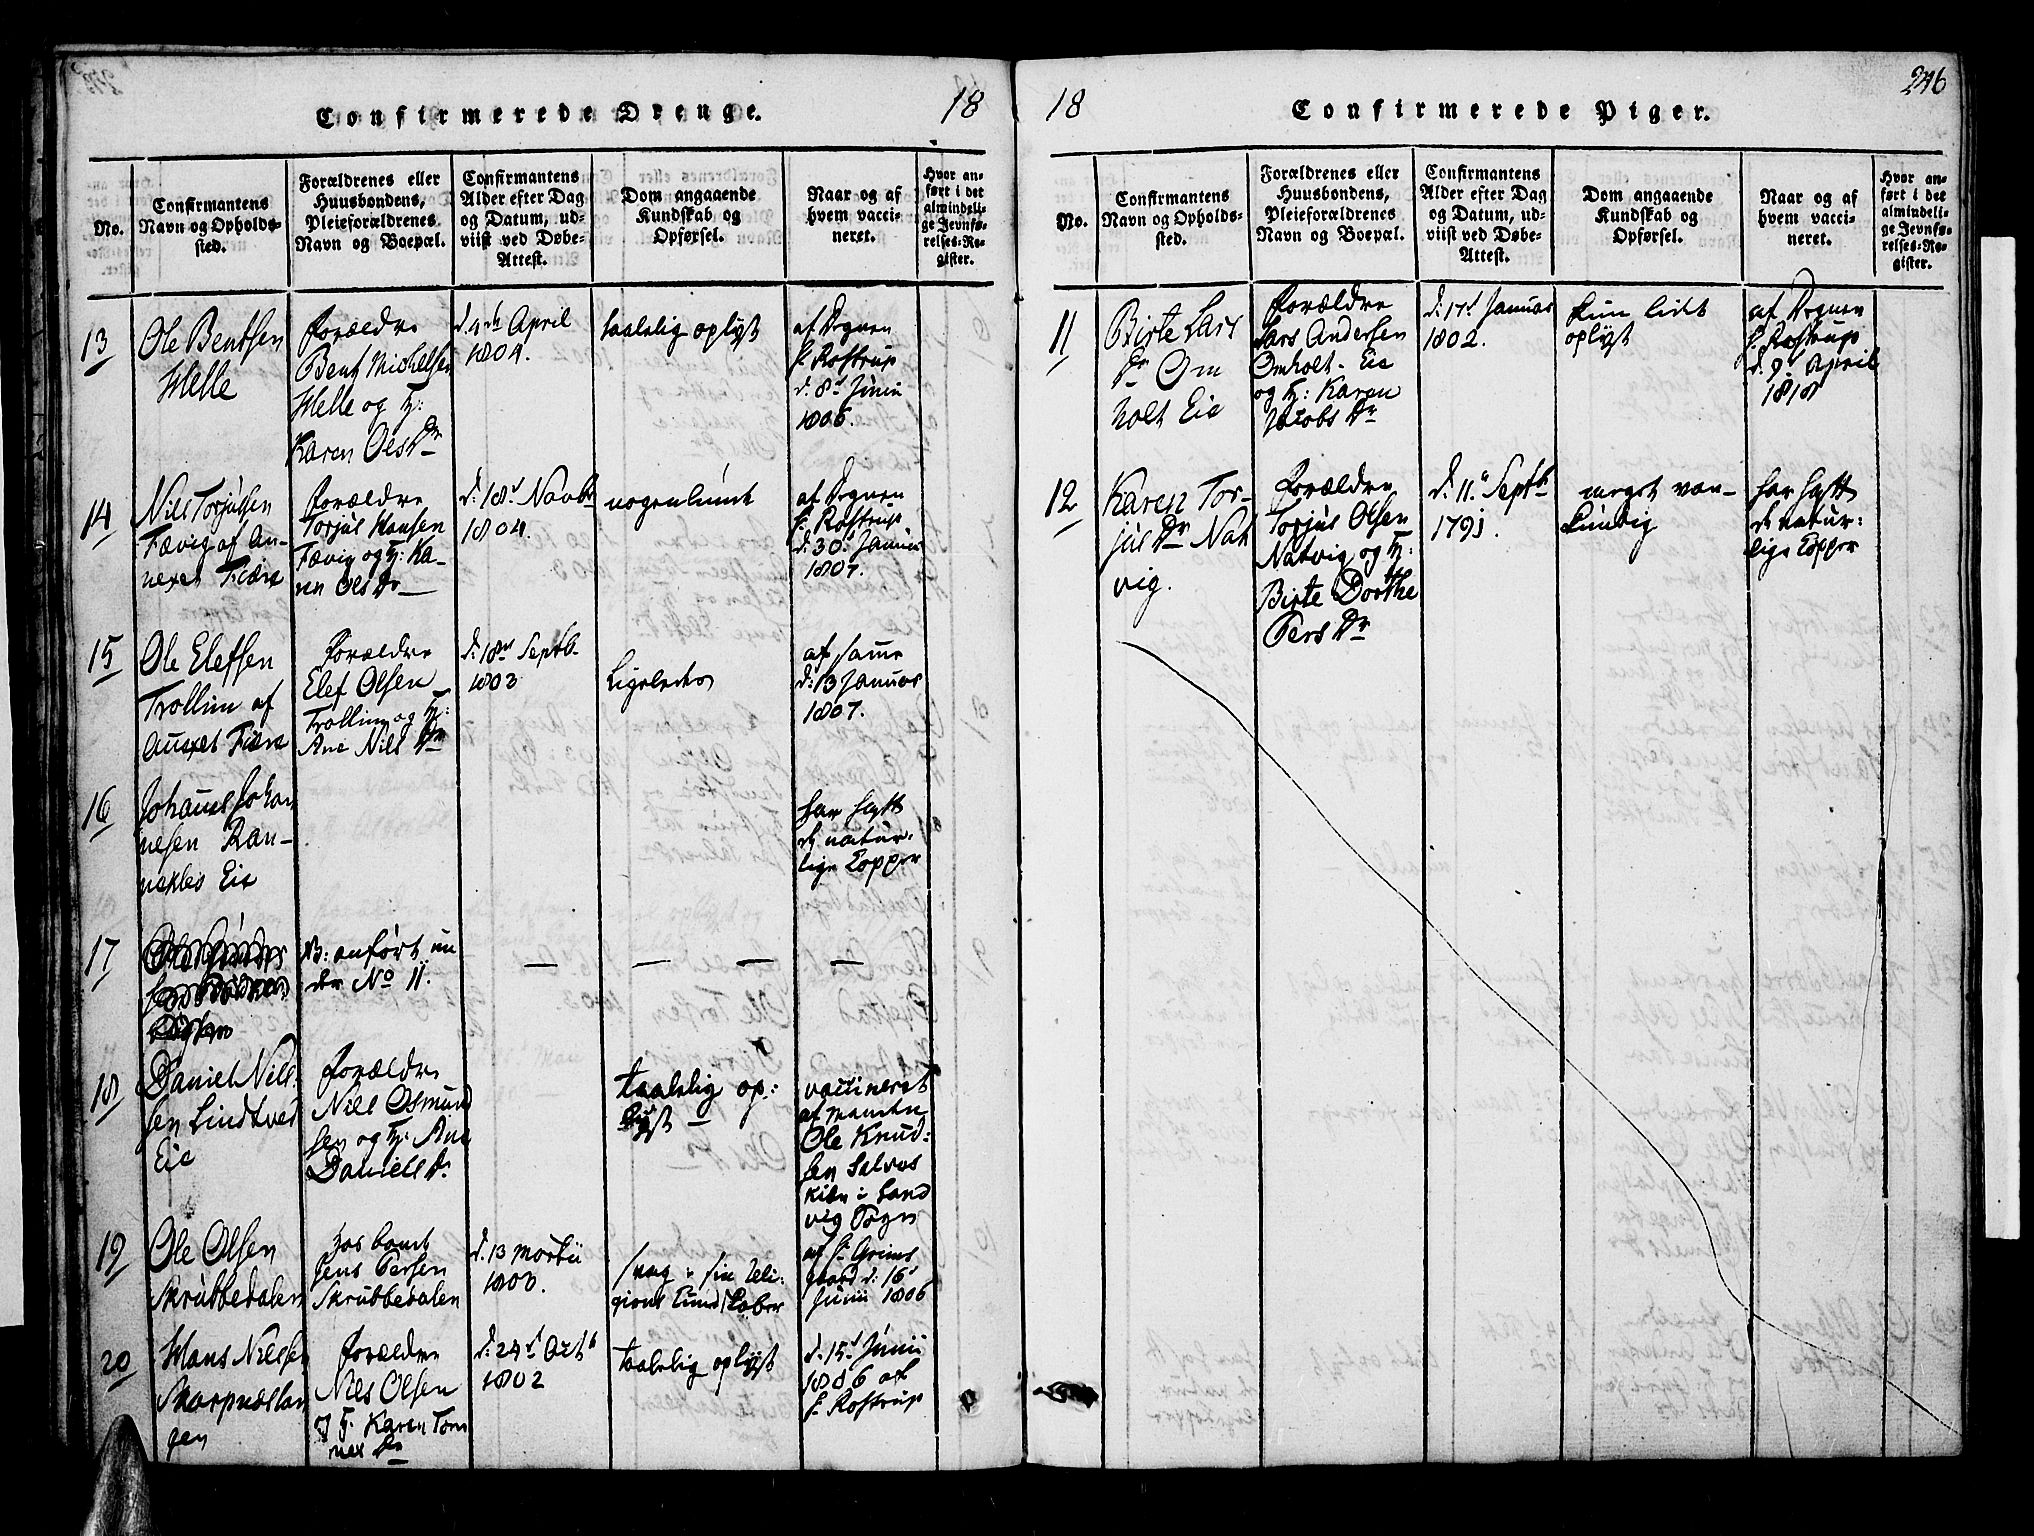 Confirmerede Drenge.
18
No.
Confirmantens
Navn og Opholds-
sted.
Forældrenes eller
Huusbondens,
Pleieforældrenes
Navn og Boepæl.
Confirmantens
Alder efter Dag
og Datum, ud-
viist ved Døbe-
Attest.
Dom angaaende
Kundskab og
Opførsel.
Naar og af
hvem vacci-
neret.
Hvor an-
ført i det
almindeli-
ge Jevnfø-
relses-Re-
gister.
13
Ole Bentsen
Helle
Forældre
Bent Michelsen
Helle og H:
Karen Olsdr
d. 4de April
1804.
taalelig oplyst
af Degnen
H. Rostrup
d. 8d Junii
1806.
14
Nils Torjusen
Fævig af An-
nexet Fiære
Forældre
Torjus Hansen
Fævig og H: Ka-
ren Ols Dr
d: 18d Novbr
1804.
nogenlunde
af Degnen
H. Rostrup
d: 30d Januar
1807.
15
Ole Elefsen
Trollim af
Annexet Fiære
Forældre
Elef Olsen
Trollim og H:
Ane Nils Dr
d: 18de Septb
1803
Ligeledes
af samme
d: 13 Januar
1807.
16
Johannes Johan
nesen Ran-
nekles Eie
har havt
de natur-
lige Kopper
17
NB: anført un
der No 11.
18
Daniel Niel-
sen Lindtved
Eie
Forældre
Niels Osmund
sen og H: Ane
Daniels Dr
taalelig op-
lyst
vaccineret
af
Ole Knud-
sen
i Land
vig Sogn
19
Ole Olsen
Skrubbedalen
Jens Persen
Skrubbedalen
d. 13 Martii
1803.
svag i sin Reli-
gions Kundskaber
af H. Grims
gaard d: 16d
Junii 1806
20
Hans Nielsen
Skarpnæstan
gen
Forældre
Niels Olsen
H: Karen Tom
nes Dr
d: 24d Octb
1802
taalelig oplyst
d. 15d Junii
1806 af
H. Rostrup
18
Confirmerede Piger.
246
No.
Confirmantens
Navn og Opholds-
sted.
Forældrenes eller
Huusbondens,
Pleieforældrenes
Navn og Boepæl.
Confirmantens
Alder efter Dag
og Datum, ud-
viist ved Døbe-
Attest.
Dom angaaende
Kundskab og
Opførsel.
Naar og af
hvem vacci-
neret.
Hvor an-
ført i det
almindeli-
ge Jevnfø-
relses-Re-
gister.
11
Birte Lars
Dr Om
holt Eie
Forældre
Lars Andersen
Omholt Eie
og H: Karen
Jacobs Dr
d: 17d Januar
1802.
kun lidt
oplyst
af Degnen
H. Rostrup
d. 9d April
1818
12
Karen Tor-
jus Dr Nat
vig.
Forældre
Torjus Olsen
Natvig og H:
Birte Dorthe
Pers Dr
d. 11te Septb
1791.
meget van-
kundig
har havt
de natur-
lige Kopper